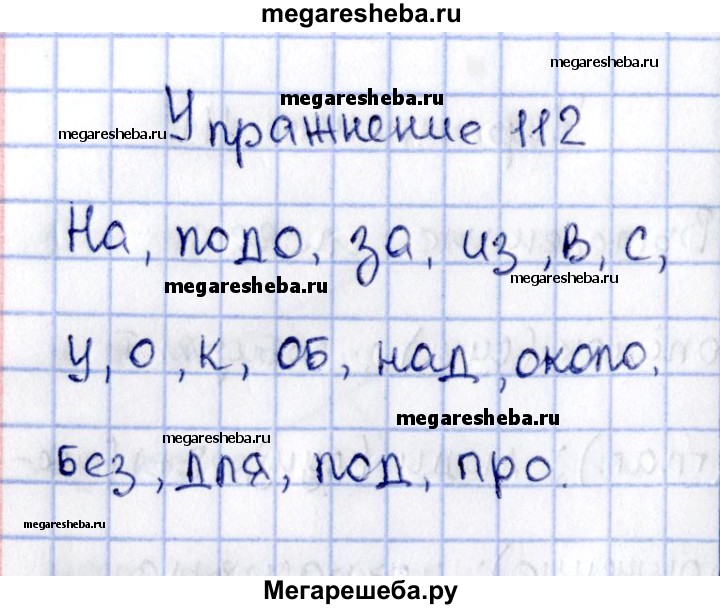 megaresheba.ru
megaresheba.ru
megaresheba.ru
megaresheba.ru
Упражнение 112
На, подо, за, из, в, с,
megaresheba.ru
megaresheba.ru
у, о, к, об, над, около,
megaresheba.ru
megaresheba.ru
без, для, под, про.
megaresheba.ru
Мегарешеба.ру